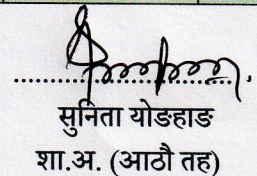 सुनिता योङहाङ
शा.अ. (आठौ तह)